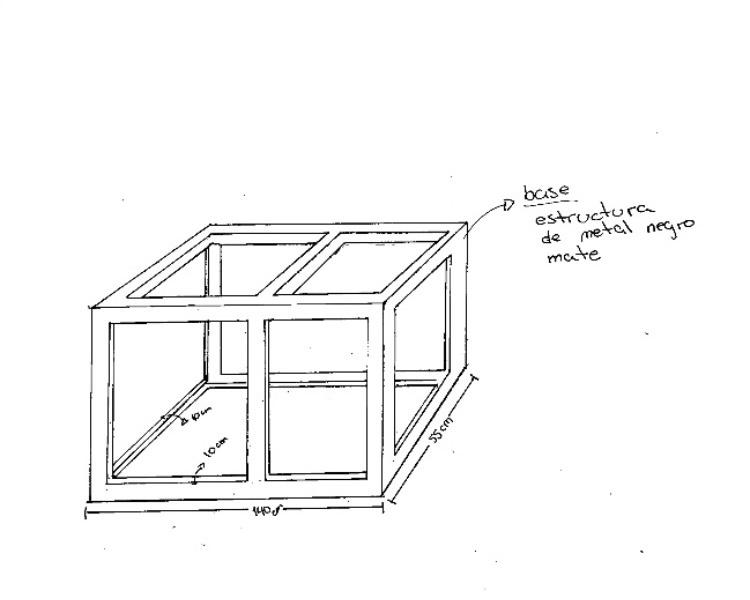 base
estructura
de metal negro
mate
10cm
55cm